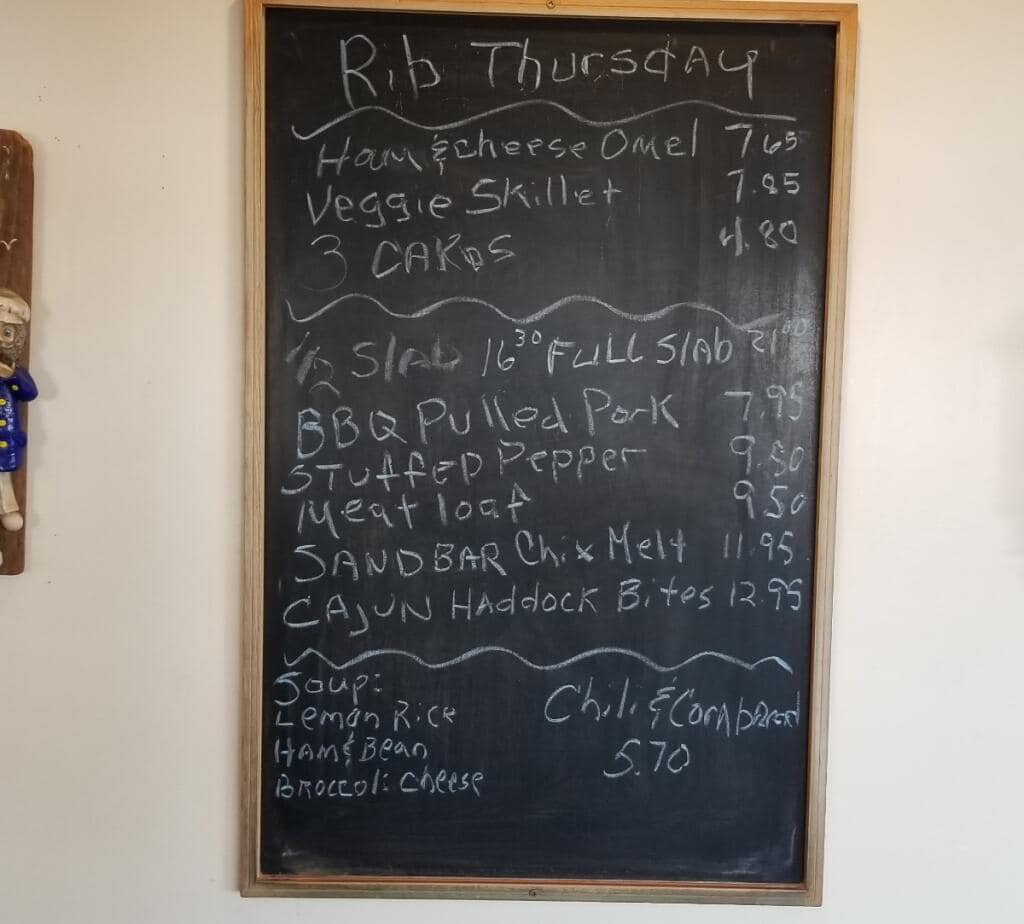 Rib Thursday
Ham & cheese Omel 7.65
Veggie Skillet 7.85
3 CAKES 4.80
1/2 Slab 16 30 FULL Slab 21 00
BBQ Pulled Pork 7.95
STuffED Pepper 9.50
Meat loaf 9.50
SANDBAR Chix Melt 11.95
CAJUN HAddock Bites 12.95
Soup:
Lemon Rice
HAM & Bean
BRoccoli cheese
Chili & Cornbread
5.70